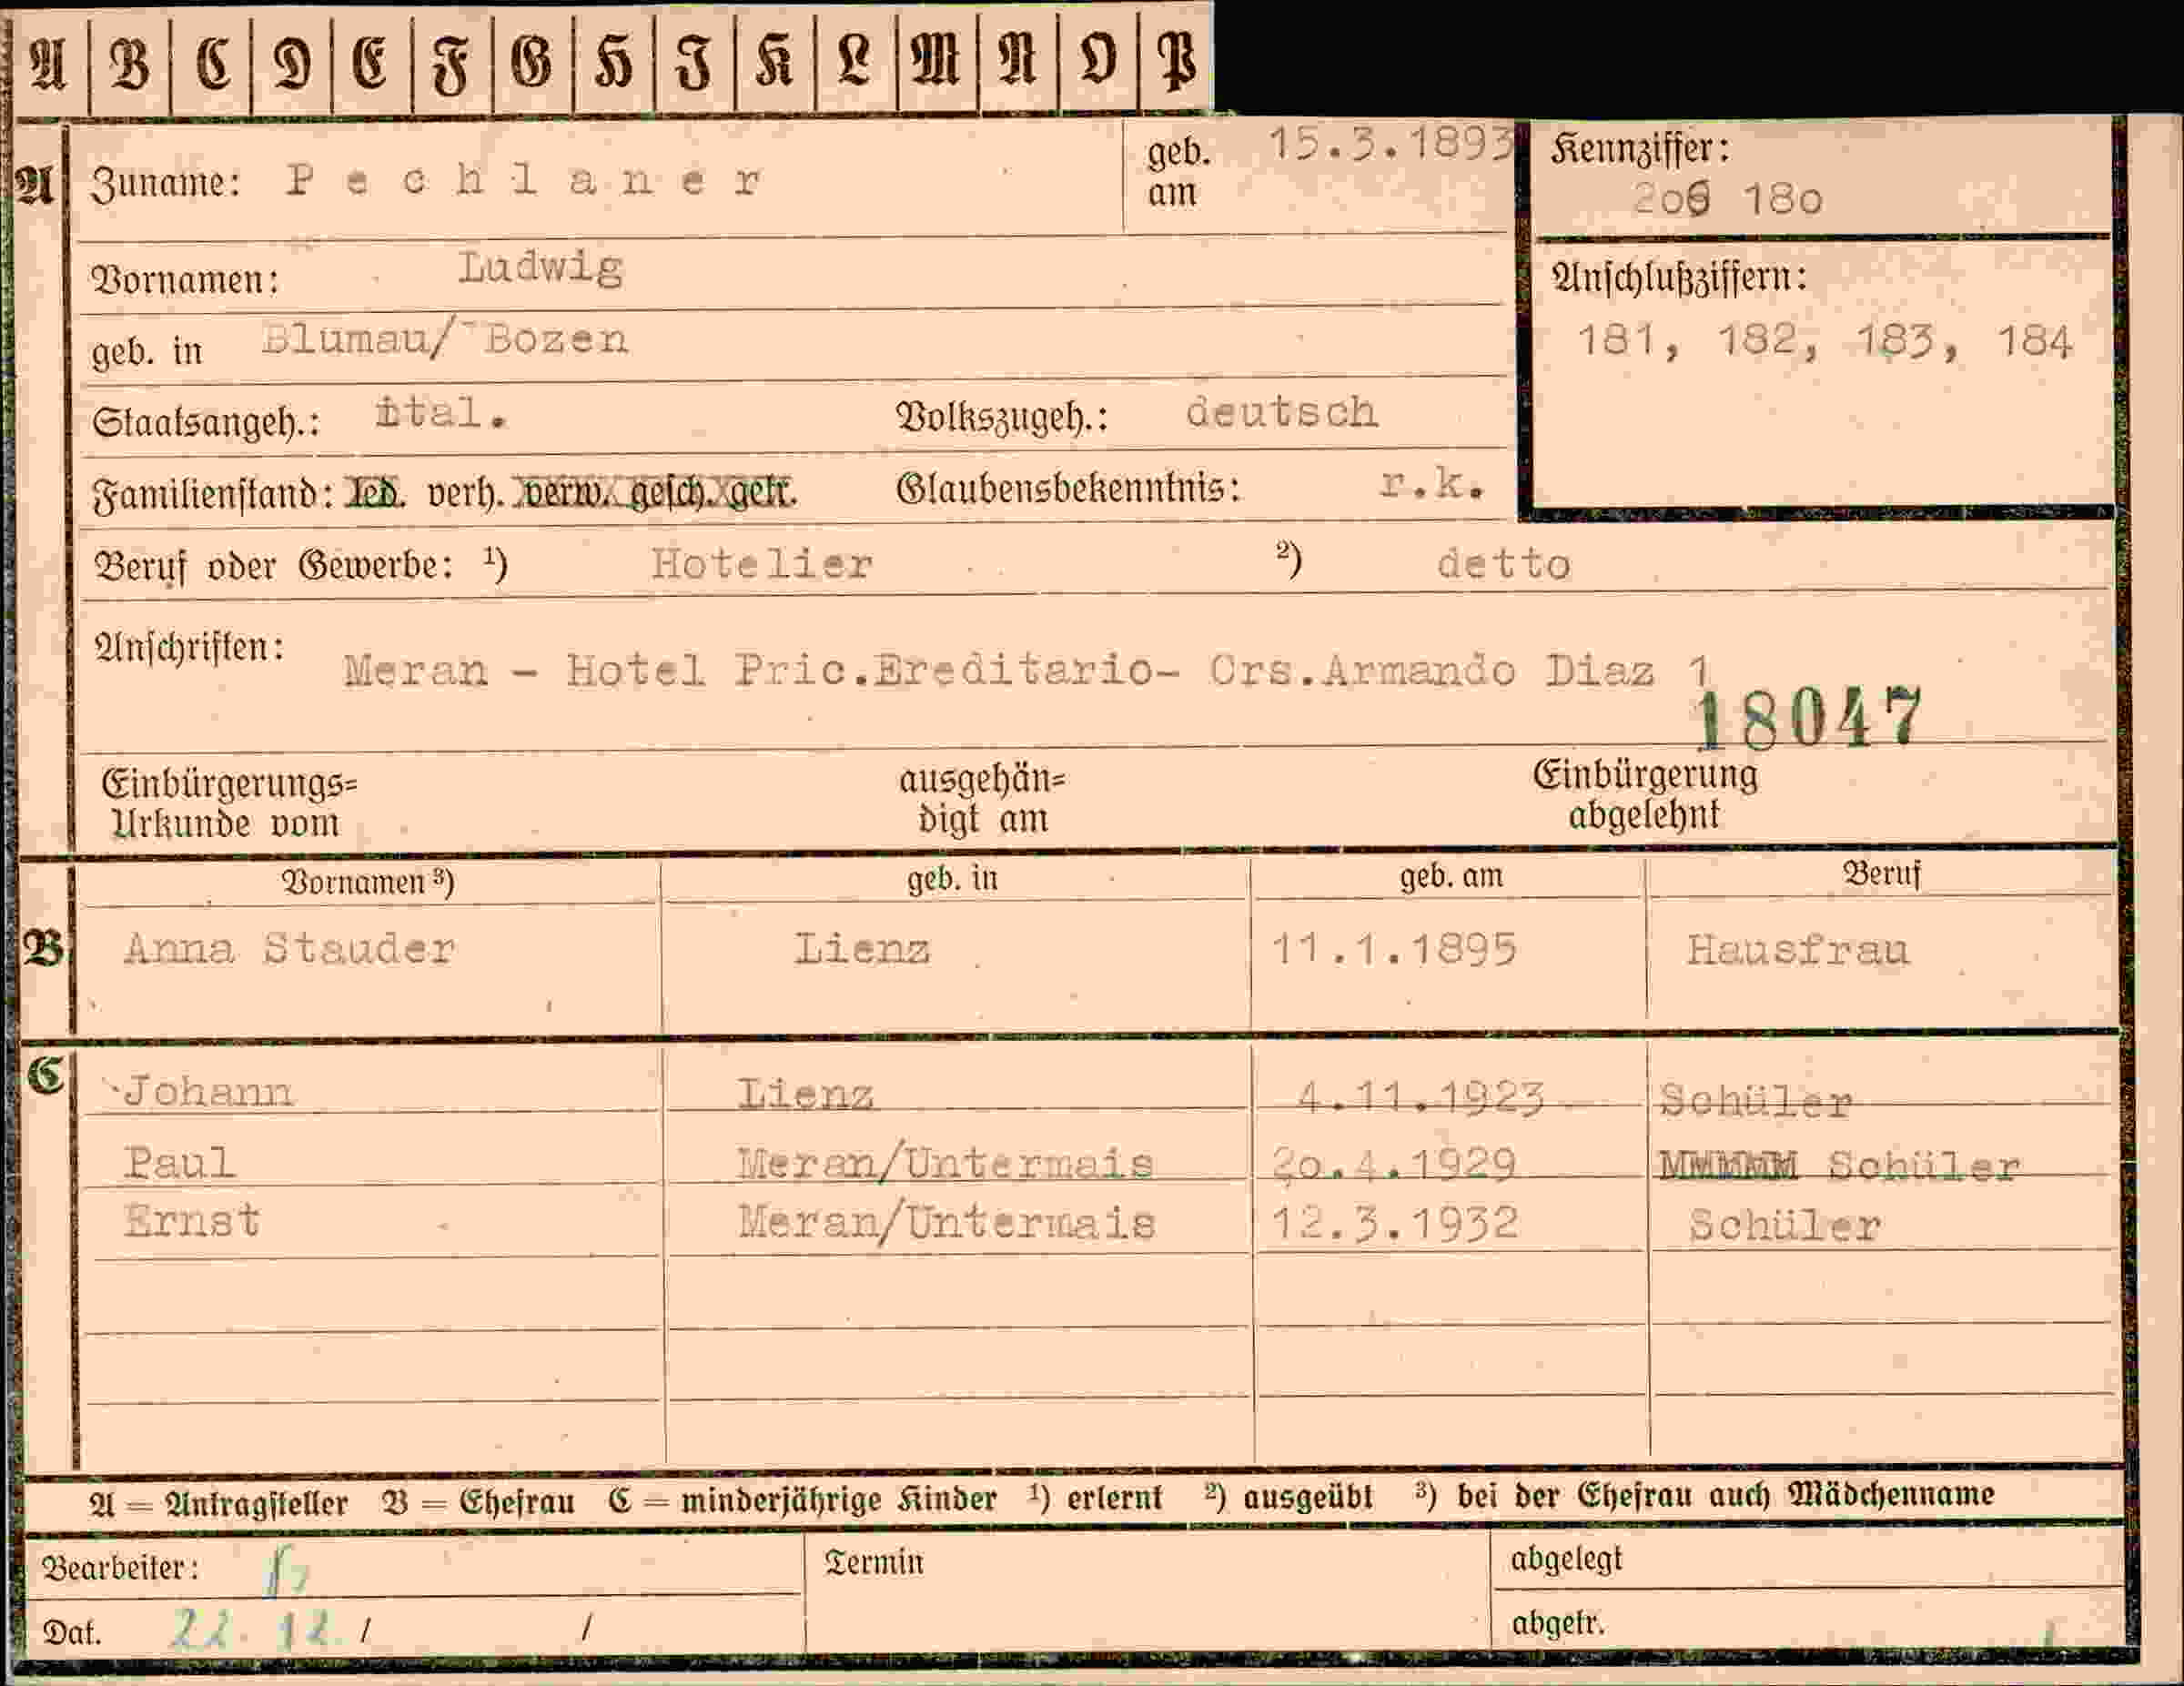 A B C D E F G H I K L M N O P
A Zuname: Pechlaner geb. am 15.3.1893 Kennziffer:
180
Vornamen: Ludwig Anschlußziffern:
geb. in Blumau/ Bozen 181, 182, 183, 184
Staatsangeh.: ital. Volkszugeh.: deutsch
Familienstand: led. verh. verw. gesch. getr. Glaubensbekenntnis: r.k.
Beruf oder Gewerbe: ¹) Hotelier ²) detto
Anschriften: Meran - Hotel Pric.Ereditario- Crs.Armando Diaz 1
18047
Einbürgerungs= ausgehän= Einbürgerung
Urkunde vom digt am abgelehnt
Vornamen ³) geb. in geb. am Beruf
B Anna Stauder Lienz 11.1.1895 Hausfrau
C Johann Lienz 4.11.1923 Schüler
Paul Meran/Untermais 20.4.1929 Schüler
Ernst Meran/Untermais 12.3.1932 Schüler
A = Antragsteller B = Ehefrau C = minderjährige Kinder ¹) erlernt ²) ausgeübt ³) bei der Ehefrau auch Mädchenname
Bearbeiter: Termin abgelegt
Dat. 22.12 / / abgetr.